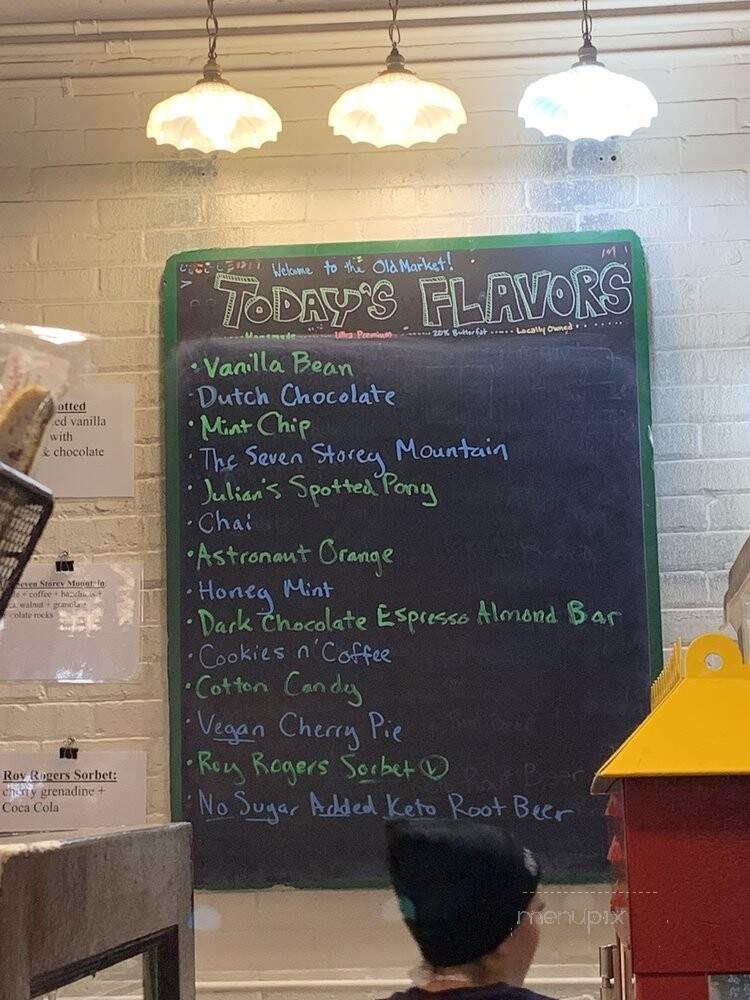 Welcome to the Old Market!
TODAY'S FLAVORS
Handmade Ultra Premium 20% Butterfat Locally Owned
• Vanilla Bean
• Dutch Chocolate
• Mint Chip
• The Seven Storey Mountain
• Julian's Spotted Pony
• Chai
• Astronaut Orange
• Honey Mint
• Dark Chocolate Espresso Almond Bar
• Cookies n' Coffee
• Cotton Candy
• Vegan Cherry Pie
• Roy Rogers Sorbet Ⓥ
• No Sugar Added Keto Root Beer
otted
ed vanilla
with
& chocolate
Seven Storey Mountain
+ coffee + hazelnut +
walnut + granola +
colate rocks
Roy Rogers Sorbet:
cherry grenadine +
Coca Cola
menupix